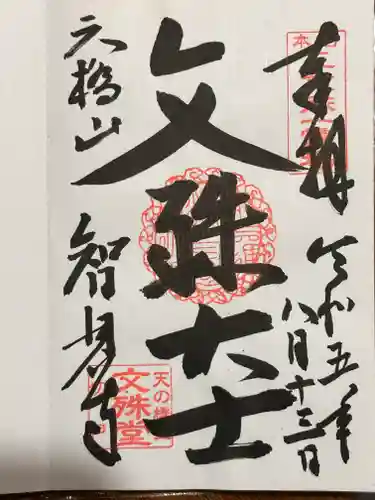 奉拝
令和五年
八月十三日
文殊大士
天橋山
智恩寺
天の橋
文殊堂